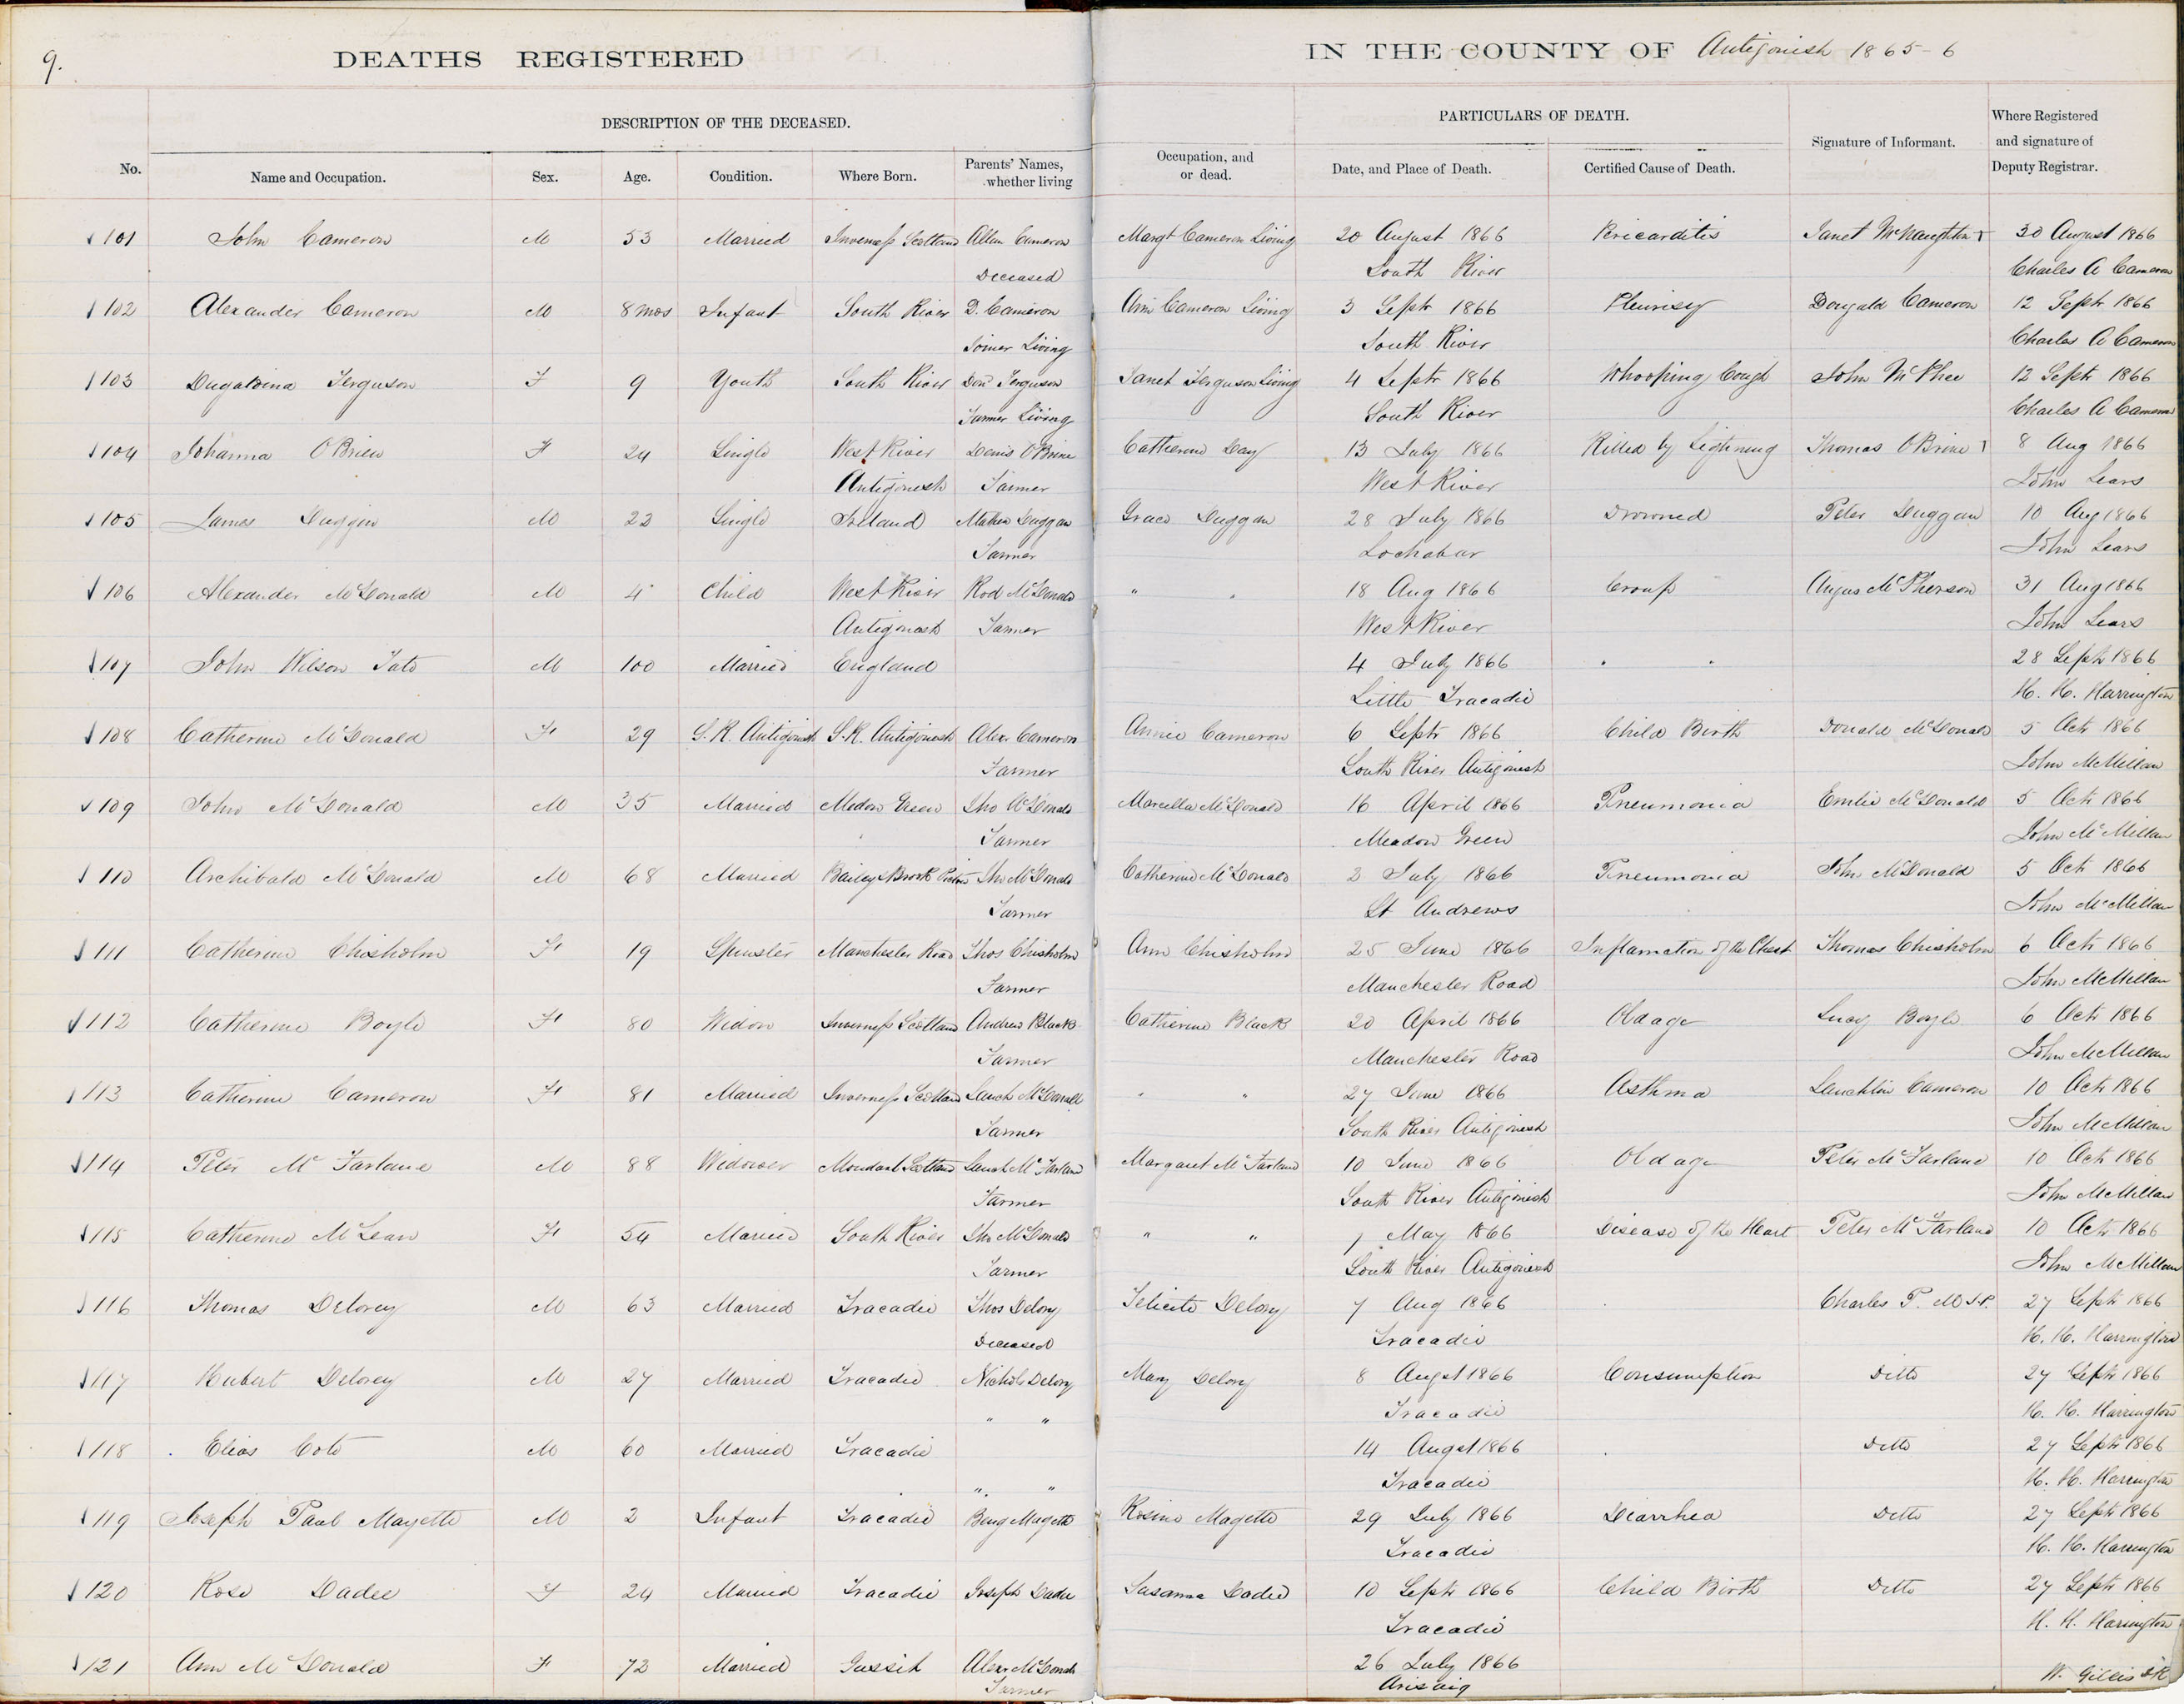 9.
DEATHS REGISTERED IN THE COUNTY OF Antigonish 1865-6
DESCRIPTION OF THE DECEASED. PARTICULARS OF DEATH.
No. Name and Occupation. Sex. Age. Condition. Where Born. Parents' Names, whether living Occupation, and or dead. Date, and Place of Death. Certified Cause of Death. Signature of Informant. Where Registered and signature of Deputy Registrar.
101 John Cameron M 53 Married Inverness Scotland Allan Cameron Margt Cameron Living 20 August 1866 Pericarditis Janet McNaughton 30 August 1866
Deceased South River Charles A Cameron
102 Alexander Cameron M 8 mos Infant South River D. Cameron Ann Cameron Living 3 Septr 1866 Pleurisy Dougald Cameron 12 Septr 1866
Joiner Living South River Charles A Cameron
103 Dugaldina Ferguson F 9 Youth South River Don Ferguson Janet Ferguson Living 4 Septr 1866 Whooping Cough John McPhee 12 Septr 1866
Farmer Living South River Charles A Cameron
104 Johanna OBrien F 24 Single West River Denis OBrine Catherine Day 13 July 1866 Killed by Lightning Thomas OBrine 8 Aug 1866
Antigonish Farmer West River John Sears
105 James Duggin M 22 Single Ireland Mathew Duggan Grace Duggan 28 July 1866 Drowned Peter Duggan 10 Aug 1866
Farmer Lochabar John Sears
106 Alexander McDonald M 4 Child West River Rod McDonald " " 18 Aug 1866 Croup Angus McPherson 31 Aug 1866
Antigonish Farmer West River John Sears
107 John Wilson Tate M 100 Married England 4 July 1866 28 Septr 1866
Little Tracadie H. H. Harrington
108 Catherine McDonald F 29 S.R. Antigonish S.R. Antigonish Alex Cameron Annie Cameron 6 Septr 1866 Child Birth Donald McDonald 5 Octr 1866
Farmer South River Antigonish John McMillan
109 John McDonald M 35 Married Medow Green Jho McDonald Marcella McDonald 16 April 1866 Pneumonia Emlie McDonald 5 Octr 1866
Farmer Meadow Green John McMillan
110 Archibald McDonald M 68 Married Baileys Brook Pictou Jho McDonald Catherine McDonald 2 July 1866 Pneumonia John McDonald 5 Octr 1866
Farmer St Andrews John McMillan
111 Catherine Chisholm F 19 Spinster Manchester Road Thos Chisholm Ann Chisholm 25 June 1866 Inflamation of the Chest Thomas Chisholm 6 Octr 1866
Farmer Manchester Road John McMillan
112 Catherine Boyle F 80 Widow Inverness Scotland Andrew Black Catherine Black 20 April 1866 Old age Lucy Boyle 6 Octr 1866
Farmer Manchester Road John McMillan
113 Catherine Cameron F 81 Married Inverness Scotland Lauch McDonald " " 27 June 1866 Asthma Lauchlin Cameron 10 Octr 1866
Farmer South River Antigonish John McMillan
114 Peter McFarlane M 88 Widower Scotland Lauch McFarlane Margaret McFarland 10 June 1866 Old age Peter McFarland 10 Octr 1866
Farmer South River Antigonish John McMillan
115 Catherine McLean F 54 Married South River Jho McDonald " " 1 May 1866 Disease of the Heart Peter McFarland 10 Octr 1866
Farmer South River Antigonish John McMillan
116 Thomas Delorey M 63 Married Tracadie Thos Delory Felicite Delory 7 Aug 1866 Charles P. 27 Septr 1866
Deceased Tracadie H. H. Harrington
117 Hubert Delorey M 27 Married Tracadie Nichols Delory Mary Delory 8 Augst 1866 Consumption Ditto 27 Septr 1866
" " Tracadie H. H. Harrington
118 Elias Cote M 60 Married Tracadie 14 Augst 1866 Ditto 27 Septr 1866
" " Tracadie H. H. Harrington
119 Joseph Paul Mayette M 2 Infant Tracadie Benj Magette Rosine Magette 29 July 1866 Diarrhea Ditto 27 Septr 1866
Tracadie H. H. Harrington
120 Rose Dadee F 24 Married Tracadie Joseph Dadee Susanna Dadee 10 Septr 1866 Child Birth Ditto 27 Septr 1866
Tracadie H. H. Harrington
121 Ann McDonald F 72 Married Alexr McDonald 26 July 1866
Farmer Arisaig W. Gillis DR